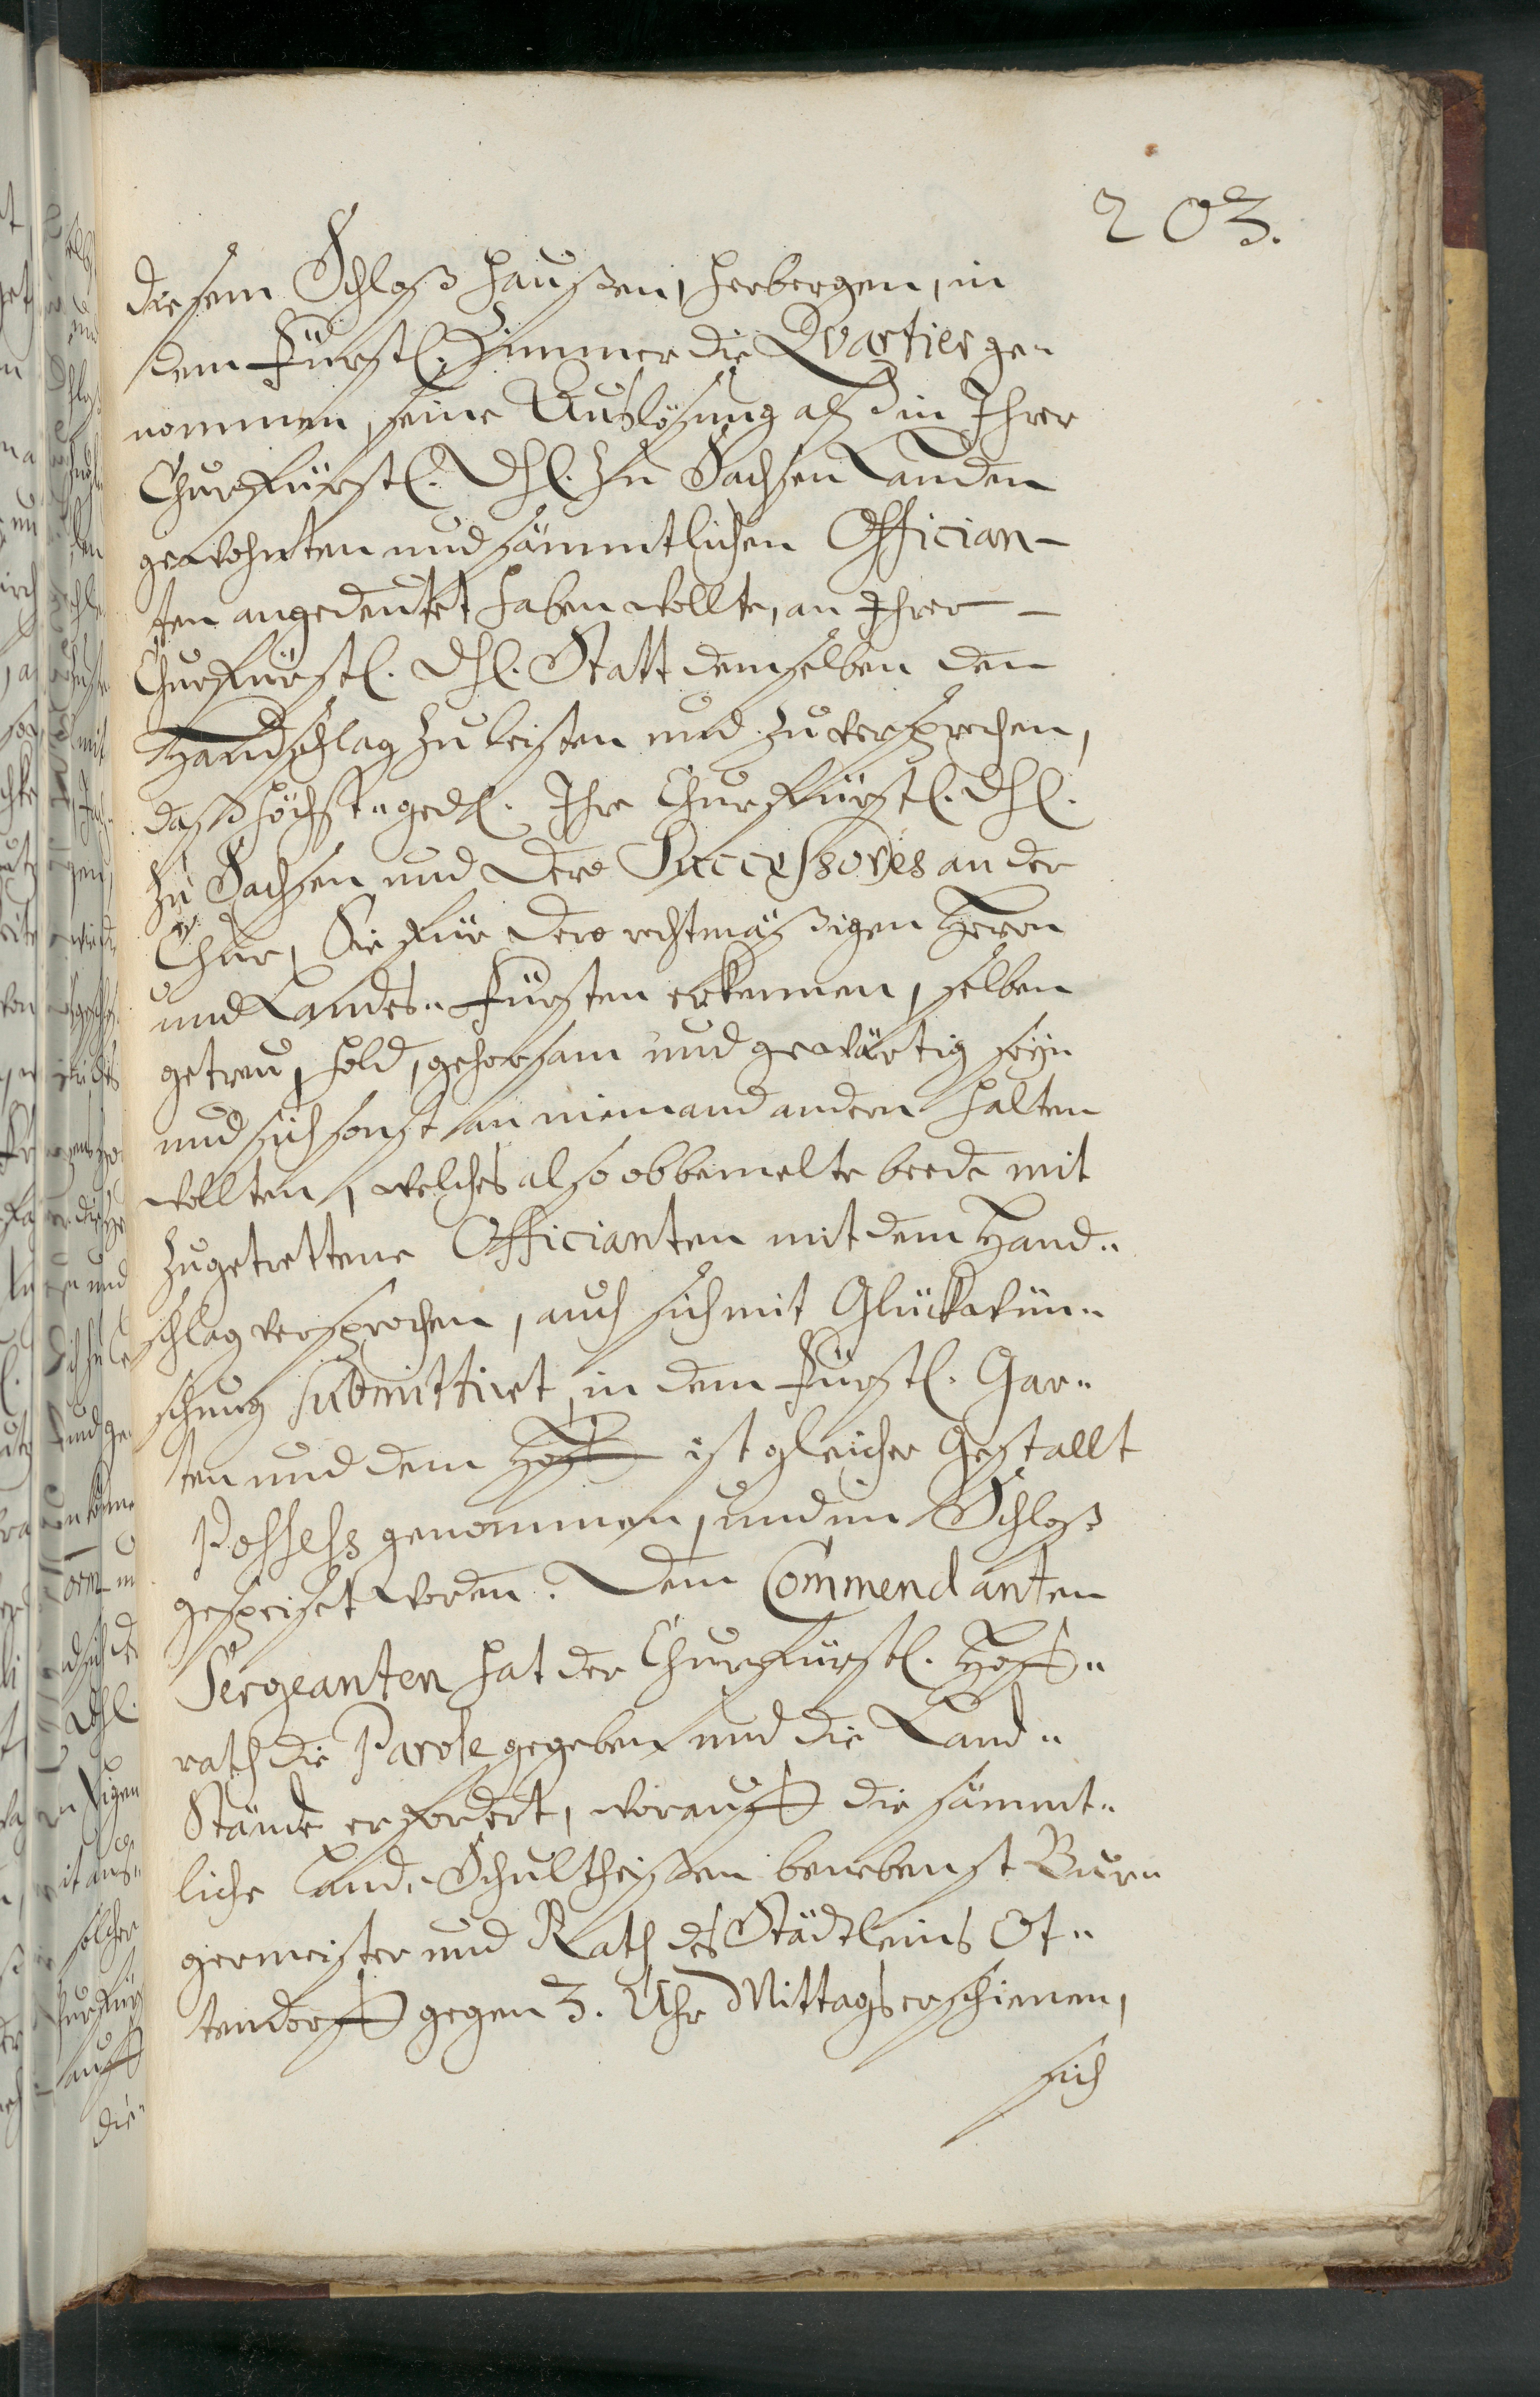 203.
diesem Schloß haußen, herbergen, in
dem Fürstl. Zimmer die Qvartier ge-
nommen, seine Auslösung als in Ihrer
ChurFürstl. Dhl. zu Sachsen Landen
gewohnten und sämmtlichen Offician-
ten angedeutet haben wollte, an Ihrer
ChurFürstl. Dhl. Statt demselben den
Handschlag zu leisten und zu versprechen,
daß höchst-ged. Ihre ChurFürstl. Dhl.
zu Sachsen und Dero Successores an der
Chur, Sie für Dero rechtmäßigen Herrn
und Landes-Fürsten erkennen, selben
getreu, hold, gehorsam und gewärtig seyn
und sich sonst an niemand andern halten
wollten, welches also obbemelte beede mit
zugetrettene Officianten mit dem Hand-
schlag versprochen, auch sich mit Glückwün-
schung submittirt, in dem Fürstl. Gar-
ten und dem Hoff ist gleicher Gestallt
Possess genommen, und im Schloß
gespeiset worden. Dem Commendanten
Sergeanten hat der ChurFürstl. Hoff-
rath die Parole gegeben und die Land-
Stände erfordert, worauff die sämmt-
liche Land-Schultheissen benebenst Bur-
germeister und Rath des Städtleins Ot-
tendorff gegen 3. Uhr Mittags erschienen,
sich